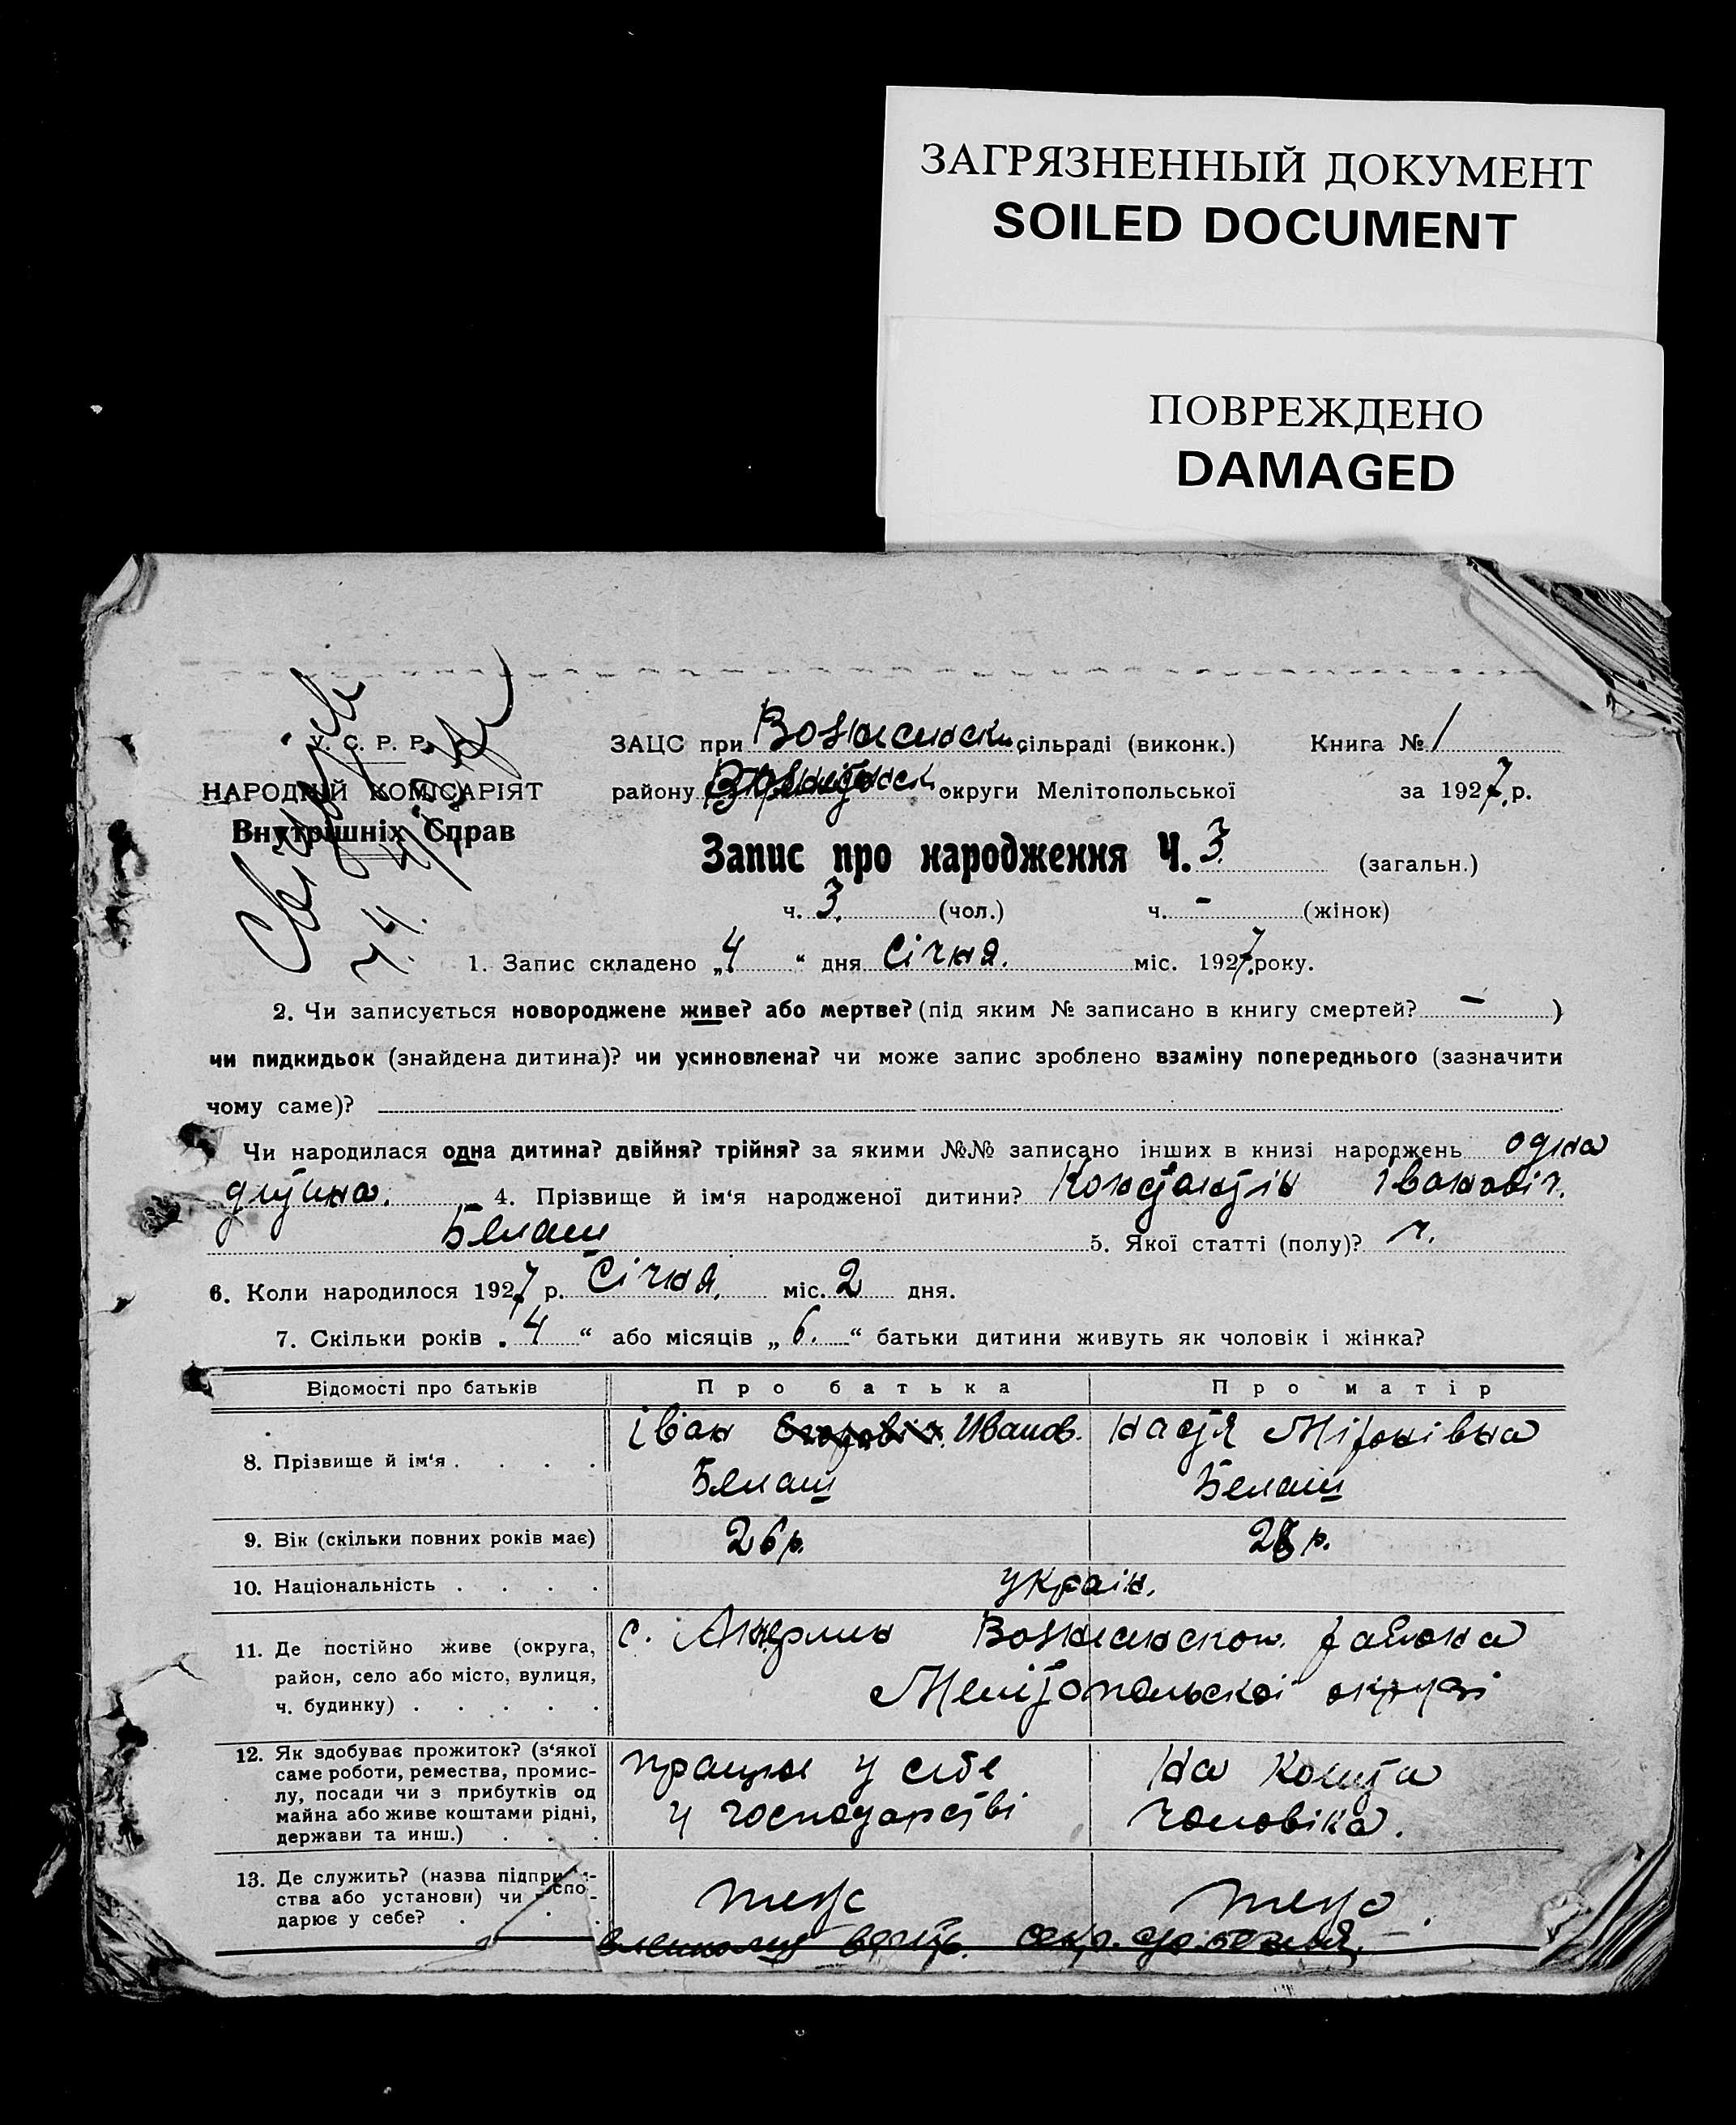 ЗАГРЯЗНЕННЫЙ ДОКУМЕНТ
SOILED DOCUMENT
ПОВРЕЖДЕНО
DAMAGED
У. С. Р. Р.
НАРОДНІЙ КОМІСАРІЯТ
Внутрішніх Справ
ЗАЦС при Вознесенськ. сільраді (виконк.) Книга № 1
району округи Мелітопольської за 1927 р.
Запис про народження Ч. 3 (загальн.)
ч. 3. (чол.) ч. - (жінок)
1. Запис складено „4“ дня Січня. міс. 1927 року.
2. Чи записується новороджене живе? або мертве? (під яким № записано в книгу смертей? - )
чи пидкидьок (знайдена дитина)? чи усиновлена? чи може запис зроблено взаміну попереднього (зазначити
чому саме)?
Чи народилася одна дитина? двійня? трійня? за якими №№ записано інших в книзі народжень одна
дитина. 4. Прізвище й ім'я народженої дитини? Константін Івановіч.
Белаш 5. Якої статті (полу)? ч.
6. Коли народилося 1927 р. Січня. міс. 2 дня.
7. Скільки років „4“ або місяців „6.“ батьки дитини живуть як чоловік і жінка?
Відомості про батьків Про батька Про матір
8. Прізвище й ім'я . . . . Іван Иванов. Настя Міронівна
Белаш Белаш
9. Вік (скільки повних років має) 26 р. 28 р.
10. Національність . . . . україн.
11. Де постійно живе (округа, район, село або місто, вулиця, ч. будинку) . . . . . с. Вознесенског. района
Мелітопольскої округі
12. Як здобуває прожиток? (з'якої саме роботи, ремества, промислу, посади чи з прибутків од майна або живе коштами рідні, держави та инш.) . . . працює у себе На кошта
у господарстві чоловіка.
13. Де служить? (назва підприємства або установи) чи господарює у себе? . . . теж теж